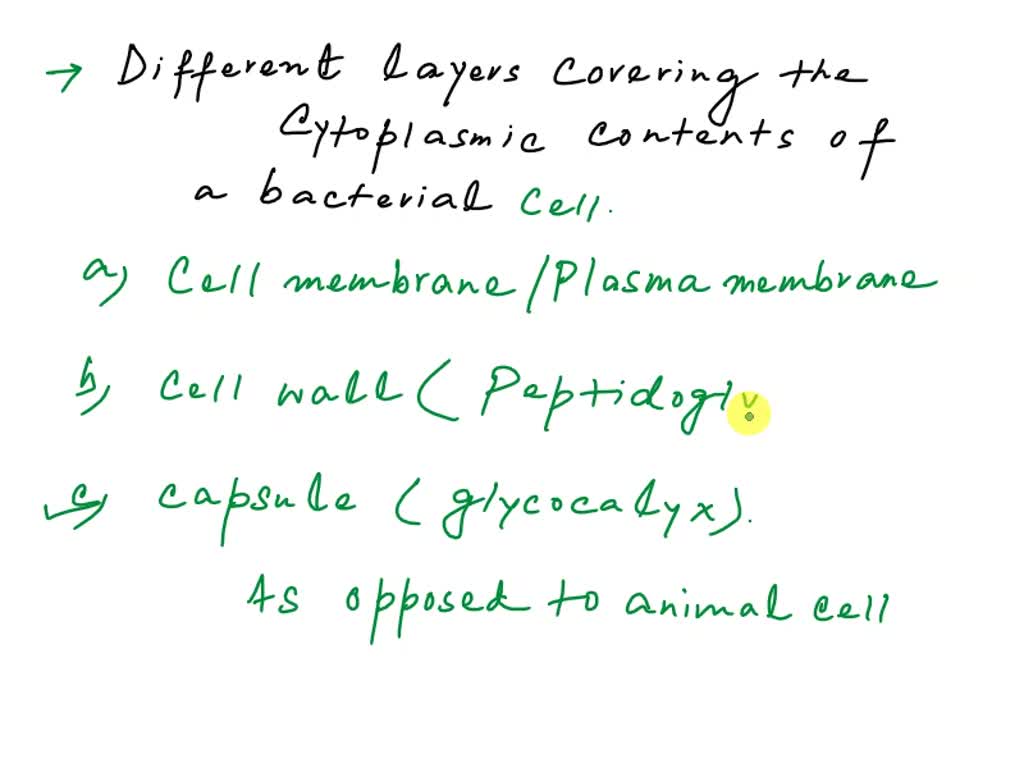 → Different layers covering the
Cytoplasmic contents of
a bacterial cell.
a) Cell membrane/Plasma membrane
b) Cell wall (Peptidogly
c) capsule (glycocalyx).
As opposed to animal cell